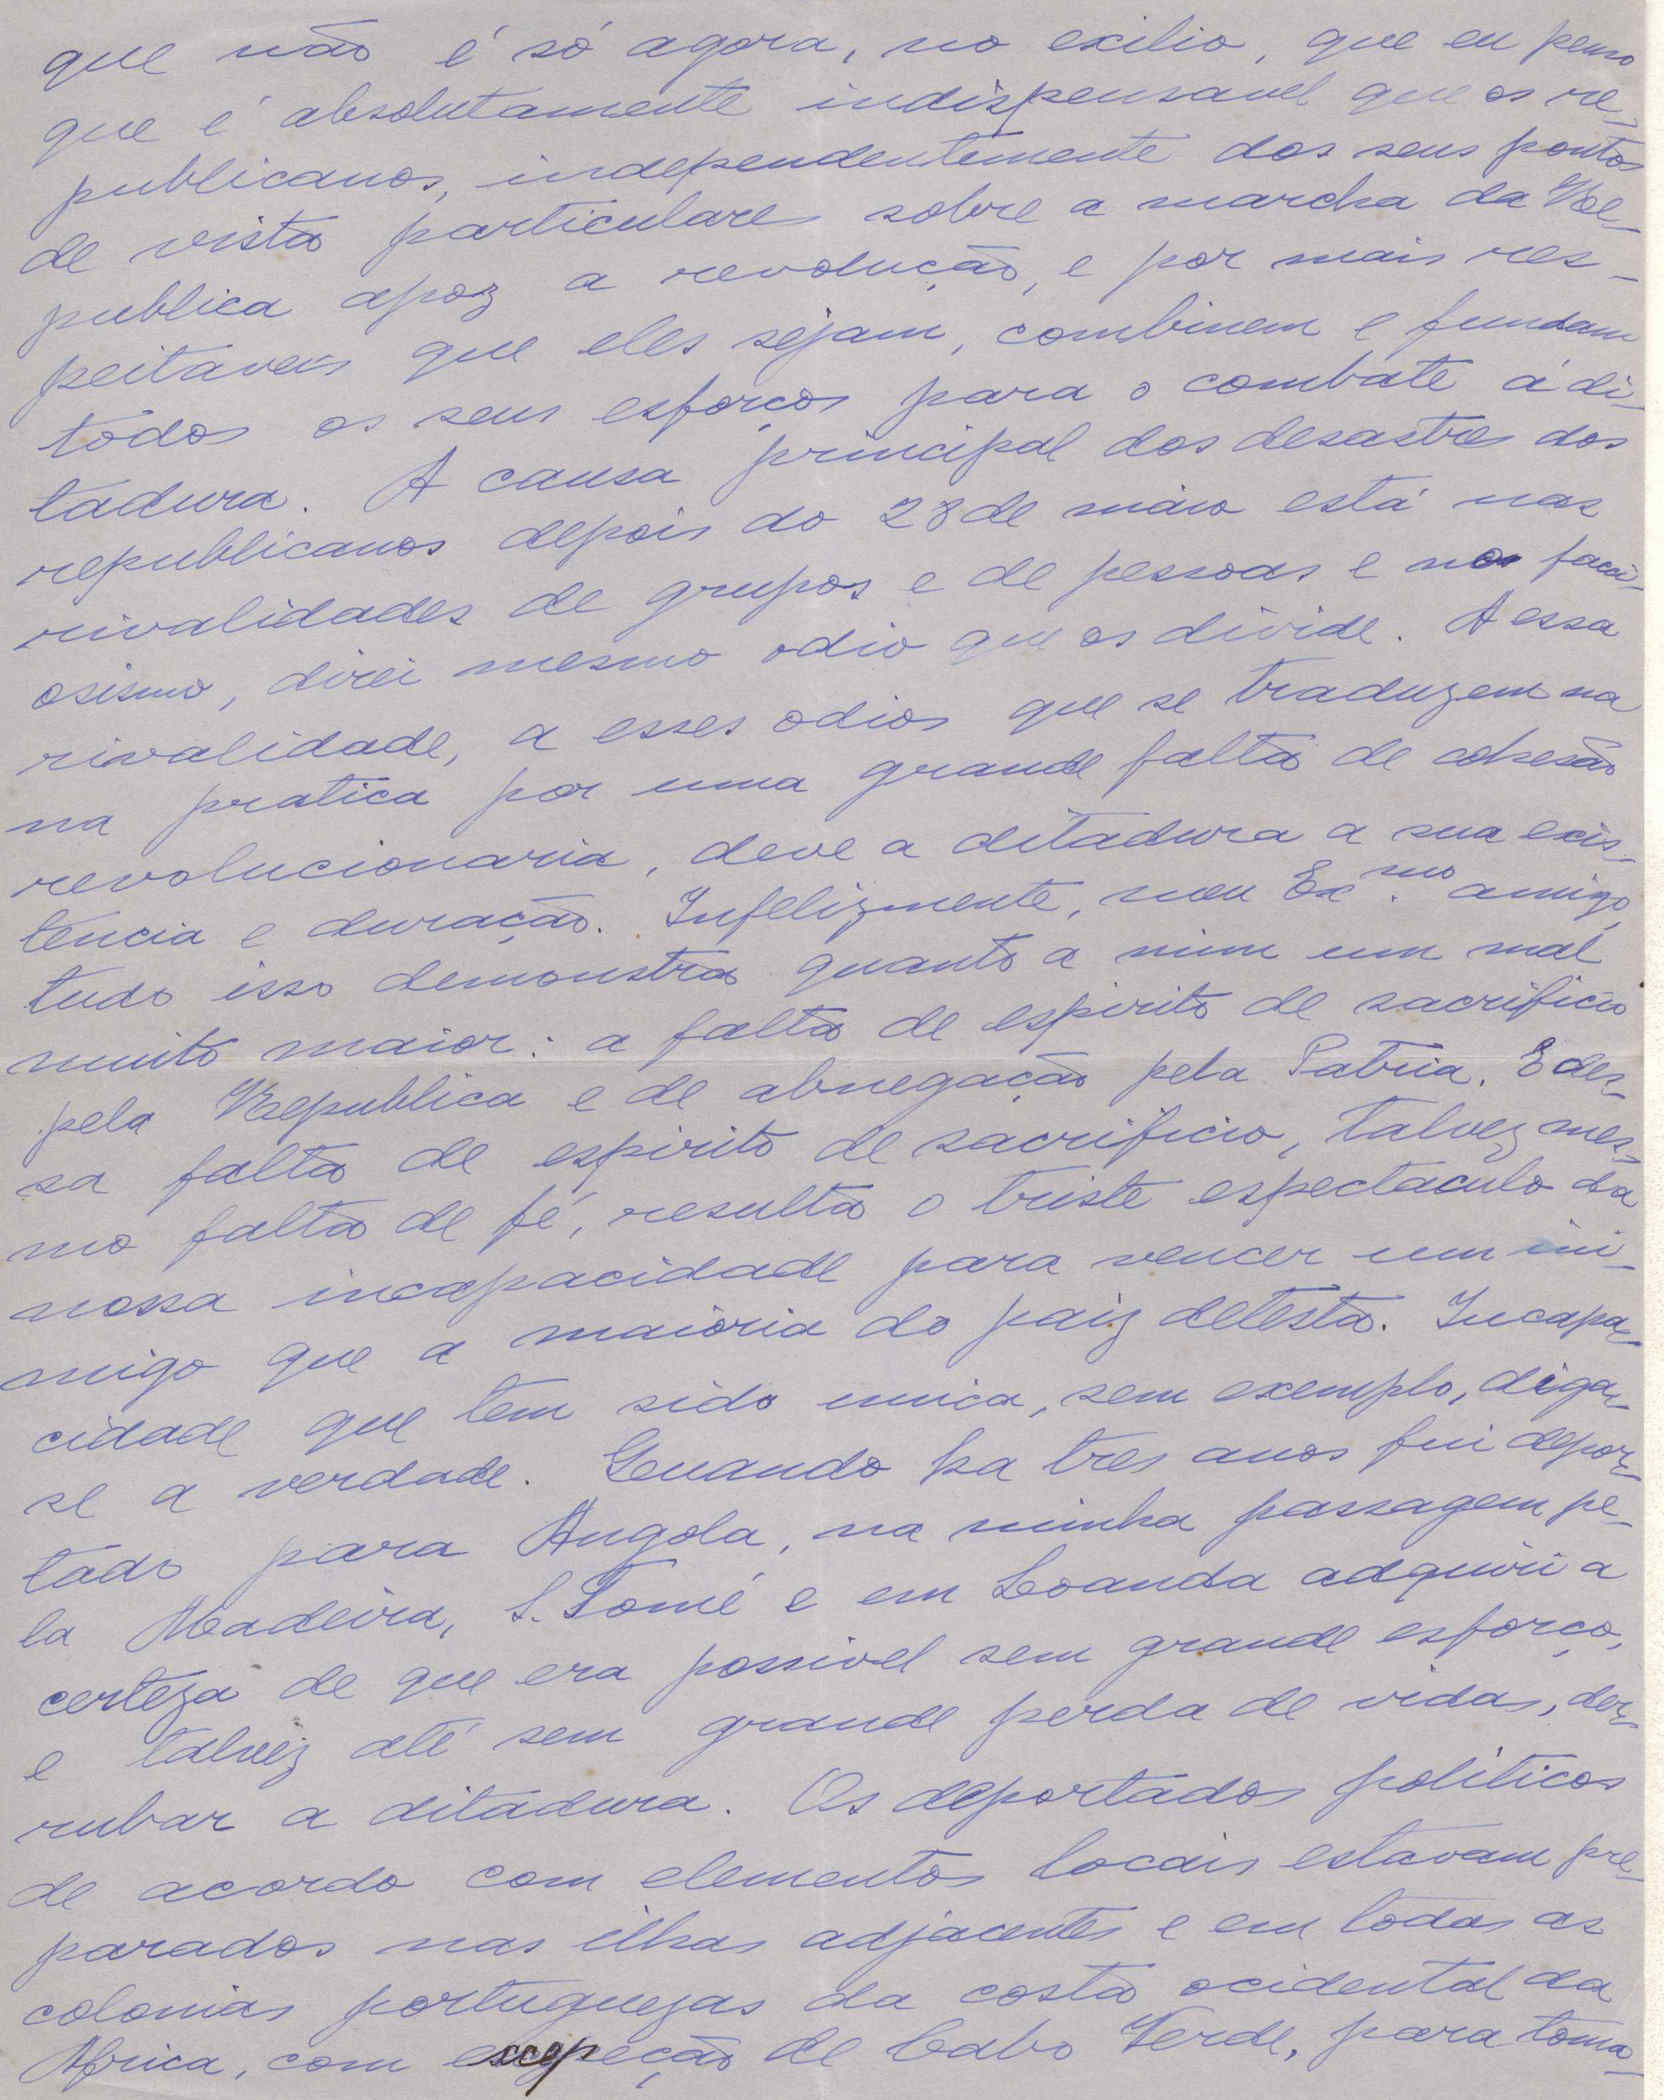 que não é só agora, no exilio, que eu penso
que é absolutamente indispensavel que os re-
publicanos, independentemente dos seus pontos
de vista particulares sobre a marcha da Re-
publica apoz a revolução, e por mais res-
peitaveis que eles sejam, combinem e fundam
todos os seus esforços para o combate á di-
tadura. A causa principal dos desastres dos
republicanos depois do 28 de maio está nas
rivalidades de grupos e de pessoas e no facci-
osismo, direi mesmo odio que os divide. A essa
rivalidade, a esses odios que se traduzem na
na pratica por uma grande falta de cohesão
revolucionaria, deve a ditadura a sua exis-
tencia e duração. Infelizmente, meu Ex.mo amigo,
tudo isso demonstra quanto a mim um mal
muito maior: a falta de espirito de sacrificio
pela Republica e de abnegação pela Patria. E des-
sa falta de espirito de sacrificio, talvez mes-
mo falta de fé, resulta o triste espectaculo da
nossa incapacidade para vencer um ini-
migo que a maioria do paiz detesta. Incapa-
cidade que tem sido unica, sem exemplo, diga-
se a verdade. Quando ha tres anos fui depor-
tado para Angola, na minha passagem pe-
la Madeira, S. Tomé e em Loanda adquiri a
certeza de que era possivel sem grande esforço,
e talvez até sem grande perda de vidas, der-
rubar a ditadura. Os deportados politicos
de acordo com elementos locais estavam pre-
parados nas ilhas adjacentes e em todas as
colonias portuguezas da costa ocidental da
Africa, com excepção de Cabo Verde, para toma-